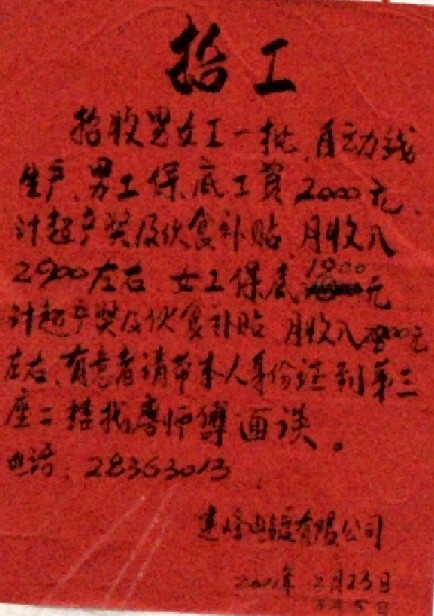 招工
招收男女工一批、自动线
生产、男工保底工資2000元、
计超产奖及伙食补贴、月收入
2900左右、女工保底1900元
计超产奖及伙食补贴、月收入元
左右、有意者请带本人身份证到第三
座二楼找唐师傅面谈。
电话:28363013
电镀有限公司
2月23日